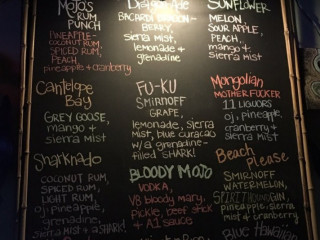 MOJOS
RUM
PUNCH
PINEAPPLE-
COCONUT RUM,
SPICED RUM,
PEACH,
pineapple & cranberry
Cantelope
Bay
GREY GOOSE,
mango &
sierra mist
Sharknado
COCONUT RUM,
SPICED RUM,
LIGHT RUM,
oj, pineapple,
grenadine,
Dragon Ade
BACARDI DRAGON-
BERRY,
sierra mist,
lemonade &
grenadine
FU-KU
SMIRNOFF
GRAPE,
lemonade, sierra
mist, blue curacao
w/a grenadine-
filled SHARK!
BLOODY MOJO
VODKA,
V8 bloody mary,
pickle, beef stick
& A1 sauce
SUNFLOWER
MELON,
SOUR APPLE,
PEACH,
mango &
sierra mist
Mongolian
MOTHER FUCKER
11 LIQUORS
oj, pineapple,
cranberry &
sierra mist
Beach
Please
SMIRNOFF
WATERMELON,
GIN,
pineapple, sierra
mist & cranberry
Blue Hawaiian